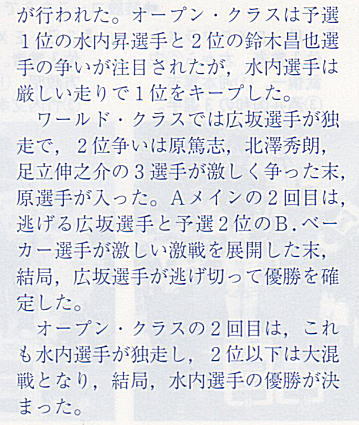 が行われた。オープン・クラスは予選
１位の水内昇選手と２位の鈴木昌也選
手の争いが注目されたが，水内選手は
厳しい走りで１位をキープした。
　ワールド・クラスでは広坂選手が独
走で，２位争いは原篤志，北澤秀朗，
足立伸之介の３選手が激しく争った末，
原選手が入った。Ａメインの２回目は，
逃げる広坂選手と予選２位のＢ.ベー
カー選手が激しい激戦を展開した末，
結局，広坂選手が逃げ切って優勝を確
定した。
　オープン・クラスの２回目は，これ
も水内選手が独走し，２位以下は大混
戦となり，結局，水内選手の優勝が決
まった。